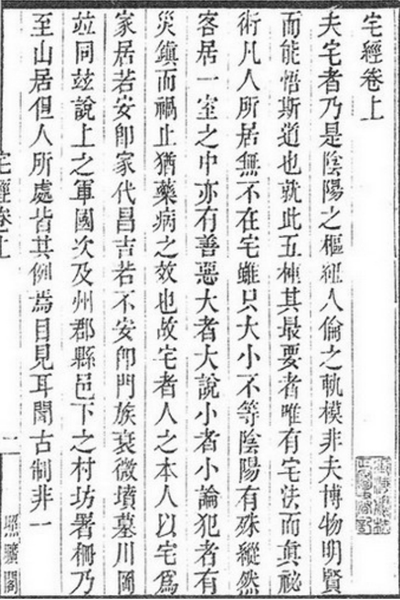 宅經卷上
夫宅者乃是陰陽之樞紐人倫之軌模非夫博物明賢
而能悟斯道也就此五種其最要者唯有宅法而眞祕
術凡人所居無不在宅雖只大小不等陰陽有殊縱然
客居一室之中亦有善惡大者大說小者小論犯者有
災鎮而禍止猶藥病之效也故宅者人之本人以宅爲
家居若安卽家代昌吉若不安卽門族衰微墳墓川岡
並同兹說上之軍國次及州郡縣邑下之村坊署柵乃
至山居但人所處皆其例焉目見耳聞古制非一
宅經卷上
一
照曠閣